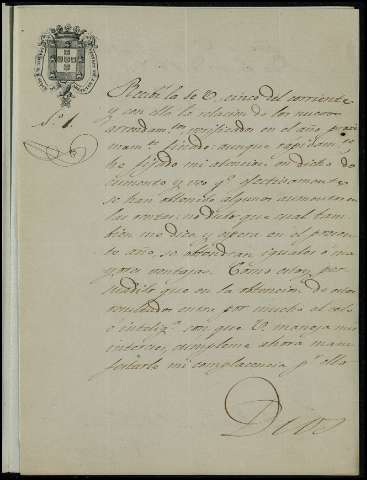 Recibí la de V. cinco del corriente
y con ella la relacion de los nuevos
arrendam.tos verificados en el año próxi
mam.te finido: aunque rapidam.te
he fijado mi atencion en dicho do
cumento y veo q.e efectivamente
se han obtenido algunos aumentos en
las rentas: no dudo que cual tam
bien me dice y espera en el presen
te año, se obtendran iguales ó ma
yores ventajas. Como estoy per
suadido que en la obtencion de estos
resultados entra por mucho el celo
é inteliz.a con que V. maneja mis
intereses, cumpleme ahora mani
festarle mi complacencia p.r ello.
Dios